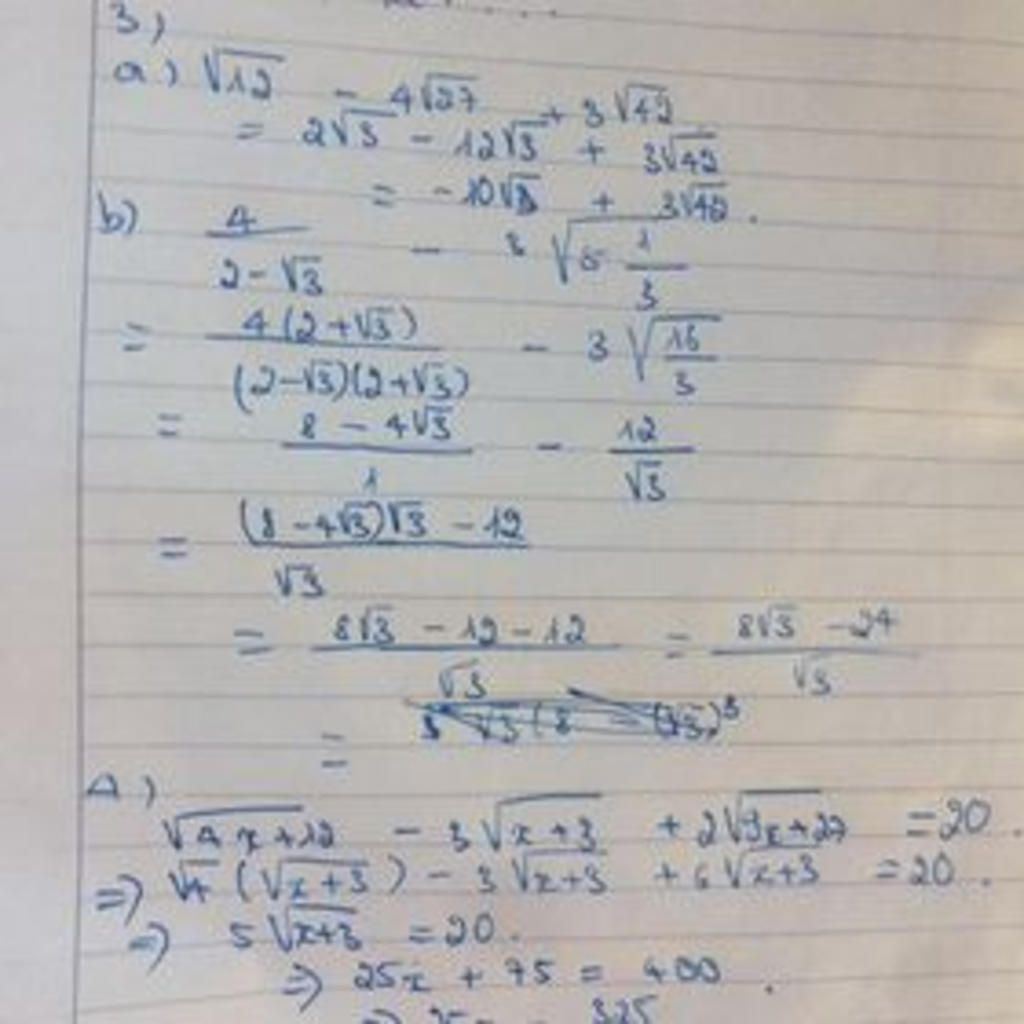 3)
a) √12 - 4√27 + 3√42
= 2√3 - 12√3 + 3√42
= -10√3 + 3√42.
b) 4/(2-√3) - 3√(5 1/3)
= 4(2+√3)/((2-√3)(2+√3)) - 3√(16/3)
= (8 - 4√3)/1 - 12/√3
= ((8 - 4√3)√3 - 12)/√3
= (8√3 - 12 - 12)/√3 = (8√3 - 24)/√3
=
4)
√(4x+12) - 3√(x+3) + 2√(9x+27) = 20.
=> √4(√(x+3)) - 3√(x+3) + 6√(x+3) = 20.
=> 5√(x+3) = 20.
=> 25x + 75 = 400.
=> 25x = 325